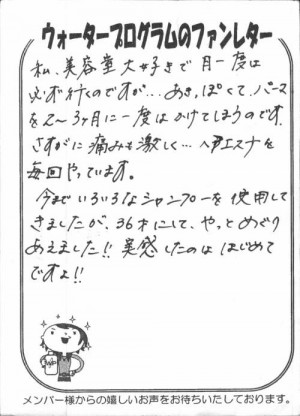 ウォータープログラムのファンレター
私、美容室大好きで月一度は
必ず行くのですが…あきっぽくて、パーマ
を2～3ヶ月に一度はかけてしまうのです。
さすがに痛みも激しく…ヘアエステを
毎回やっています。
今までいろいろなシャンプーを使用して
きましたが、36才にして、やっとめぐり
あえました!!実感したのははじめて
ですよ!!
メンバー様からの嬉しいお声をお待ちいたしております。